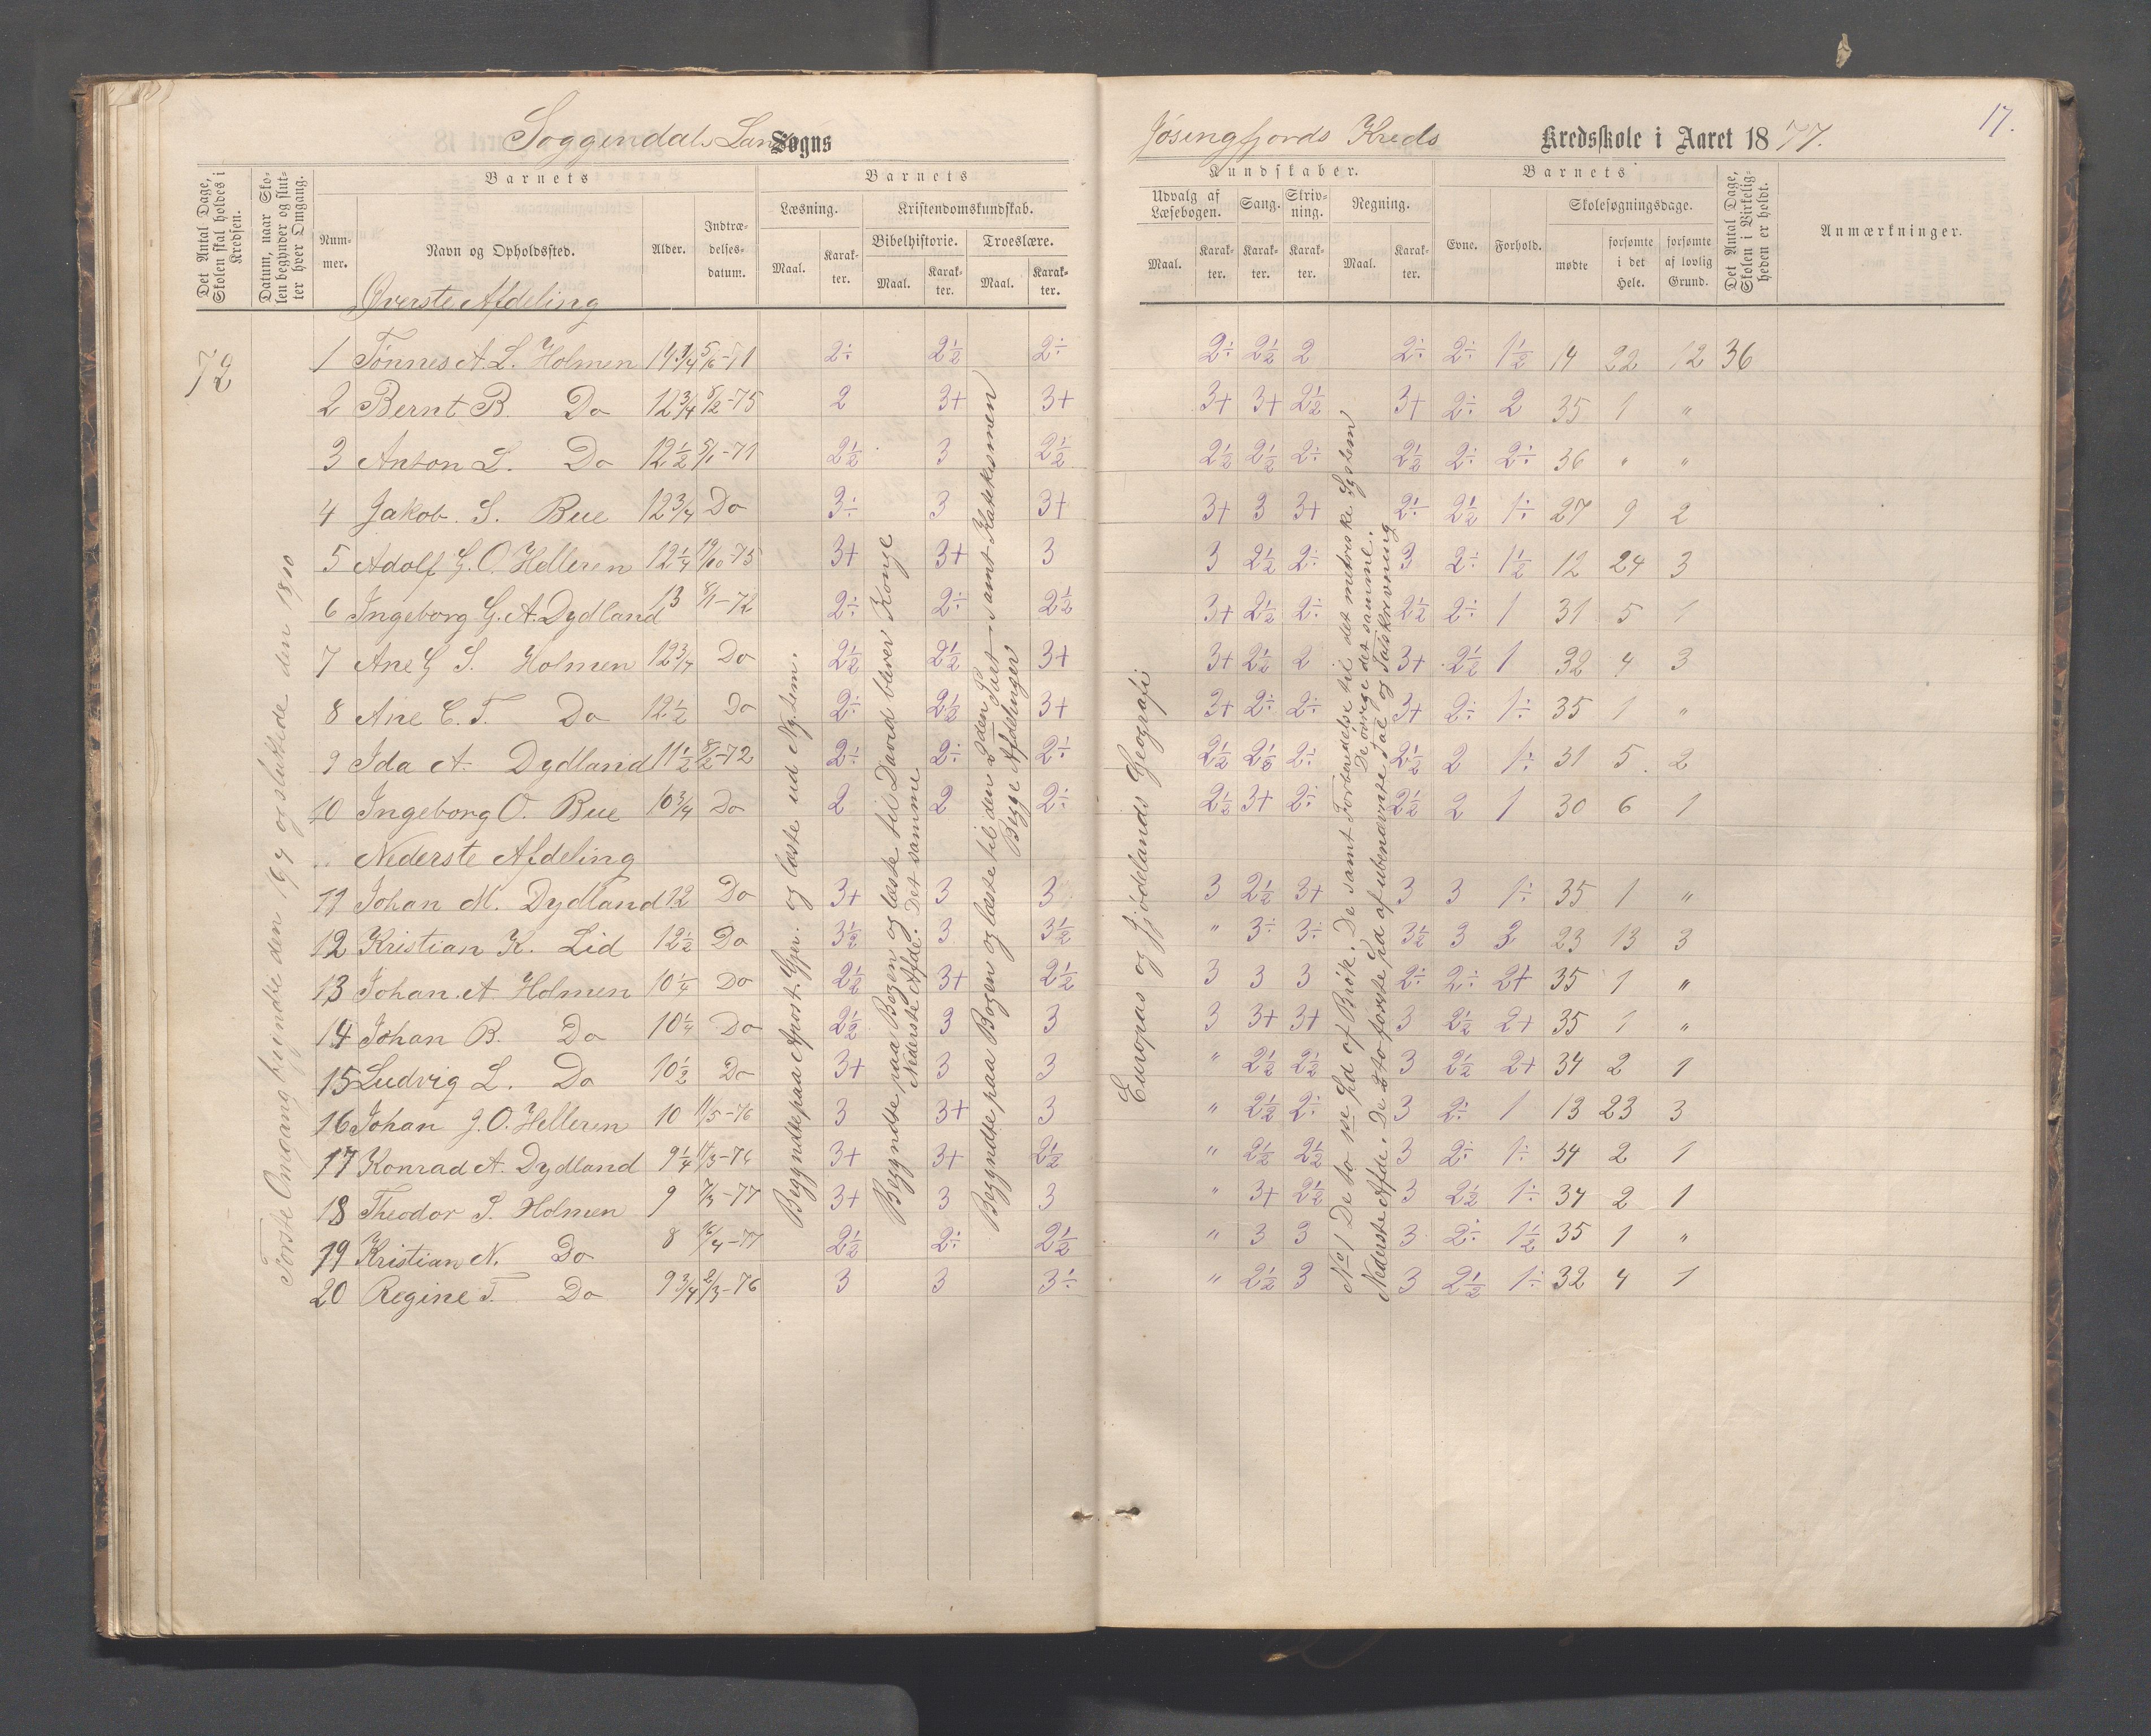 Soggendals Lands Sogns
Jøsingfjords Kreds Kredsskole i Aaret 1877.
17.
Det Antal Dage, Skolen skal holdes i Kredsen.
Datum, naar Skolen begynder og slutter hver Omgang.
Barnets
Nummer.
Navn og Opholdssted.
Alder.
Indtrædelsesdatum.
Barnets
Læsning.
Maal.
Karakter.
Kristendomskundskab.
Bibelhistorie.
Maal.
Karakter.
Troeslære.
Maal.
Karakter.
Kundskaber.
Udvalg af Læsebogen.
Maal.
Karakter.
Sang.
Karakter.
Skrivning.
Karakter.
Regning.
Maal.
Karakter.
Barnets
Evne.
Forhold.
Skolesøgningsdage.
mødte
forsømte i det Hele.
forsømte af lovlig Grund.
Det Antal Dage, Skolen i Virkeligheden er holdt.
Anmærkninger.
Øverste Afdeling
72
1 Tønnes A. L. Holmen 14 1/4 2÷ 2½ 2÷ 2÷ 2½ 2 2÷ 2÷ 1½ 14 22 12 36
2 Bernt B. Do 12 3/4 8/2-75 2 3+ 3+ 3+ 3+ 2½ 3+ 2÷ 2 35 1 "
3 Anton L. Do 12½ 5/1-71 2½ 3 2½ 2½ 2½ 2÷ 2½ 2÷ 2÷ 36 " "
4 Jakob. S. Bue 12 3/4 Do 3÷ 3 3+ 3+ 3 3+ 2÷ 2½ 1÷ 27 9 2
5 Adolf G. O. Helleren 12 1/4 19/10-75 3+ 3+ 3 3 2½ 2÷ 3 2÷ 1½ 12 24 3
6 Ingeborg G. A. Dydland 13 8/1-72 2÷ 2÷ 2½ 3+ 2½ 2÷ 2½ 2÷ 1 31 5 1
7 Ane G S. Holmen 12 3/4 Do 2½ 2½ 3+ 3+ 2½ 2 3+ 2½ 1 32 4 3
8 Ane C. T. Do 12½ Do 2÷ 2½ 3+ 3+ 2÷ 2÷ 3+ 2÷ 1÷ 35 1 "
9 Ida A. Dydland 11½ 8/2-72 2÷ 2÷ 2÷ 2½ 2½ 2÷ 2½ 2 1÷ 31 5 2
10 Ingeborg O. Bue 10 3/4 Do 2 2 2÷ 2½ 3+ 2÷ 2½ 2 1 30 6 1
Nederste Afdeling
11 Johan M. Dydland 12 Do 3+ 3 3 3 2½ 3+ 3 3 1÷ 35 1 "
12 Kristian K. Lid 12½ Do 3½ 3 3½ " 3÷ 3÷ 3½ 3 2 23 13 3
13 Johan. A Holmen 10 1/4 Do 2½ 3+ 2½ 3 3 3 2÷ 2÷ 2+ 35 1 "
14 Johan B. Do 10 1/4 Do 2½ 3 3 3 3+ 3+ 3 2½ 2+ 35 1 "
15 Ludvig L. Do 10½ Do 3+ 3 3 " 2½ 2½ 3 2½ 2+ 34 2 1
16 Johan J. O. Helleren 10 11/5-76 3 3+ 3 " 2½ 2÷ 3 2÷ 1 13 23 3
17 Konrad A. Dydland 9 1/4 11/3-76 3+ 3+ 2½ " 2½ 2½ 3 2÷ 1÷ 34 2 1
18 Theodor S. Holmen 9 7/3-77 3+ 3 3 " 3+ 2½ 3 2½ 1÷ 34 2 1
19 Kristian N. Do 8 16/4-77 2½ 2÷ 2½ " 3 3 3 2÷ 1½ 35 1 "
20 Regine T. Do 9 3/4 2/3-76 3 3 3÷ " 2½ 3 3 2½ 1÷ 32 4 1
Første Omgang begyndte den og sluttede den
Begyndte paa Apost. Gjer. og læste ud Ny. Tem.
Begyndte paa Bogen og læste til David bliver Konge
Nederste Afde. Det samme
Begyndte paa Bogen og læste til den 2den Part samt Katekismen
Begge Afdelinger
Europas og Jjødelands Geografi
No 1 De to Sp af Brøk. De samt Forberedelse til det metriske System
De øvrige det samme.
Nederste Afde. De to første Sp af ubenævnte Tal og Talskrivning